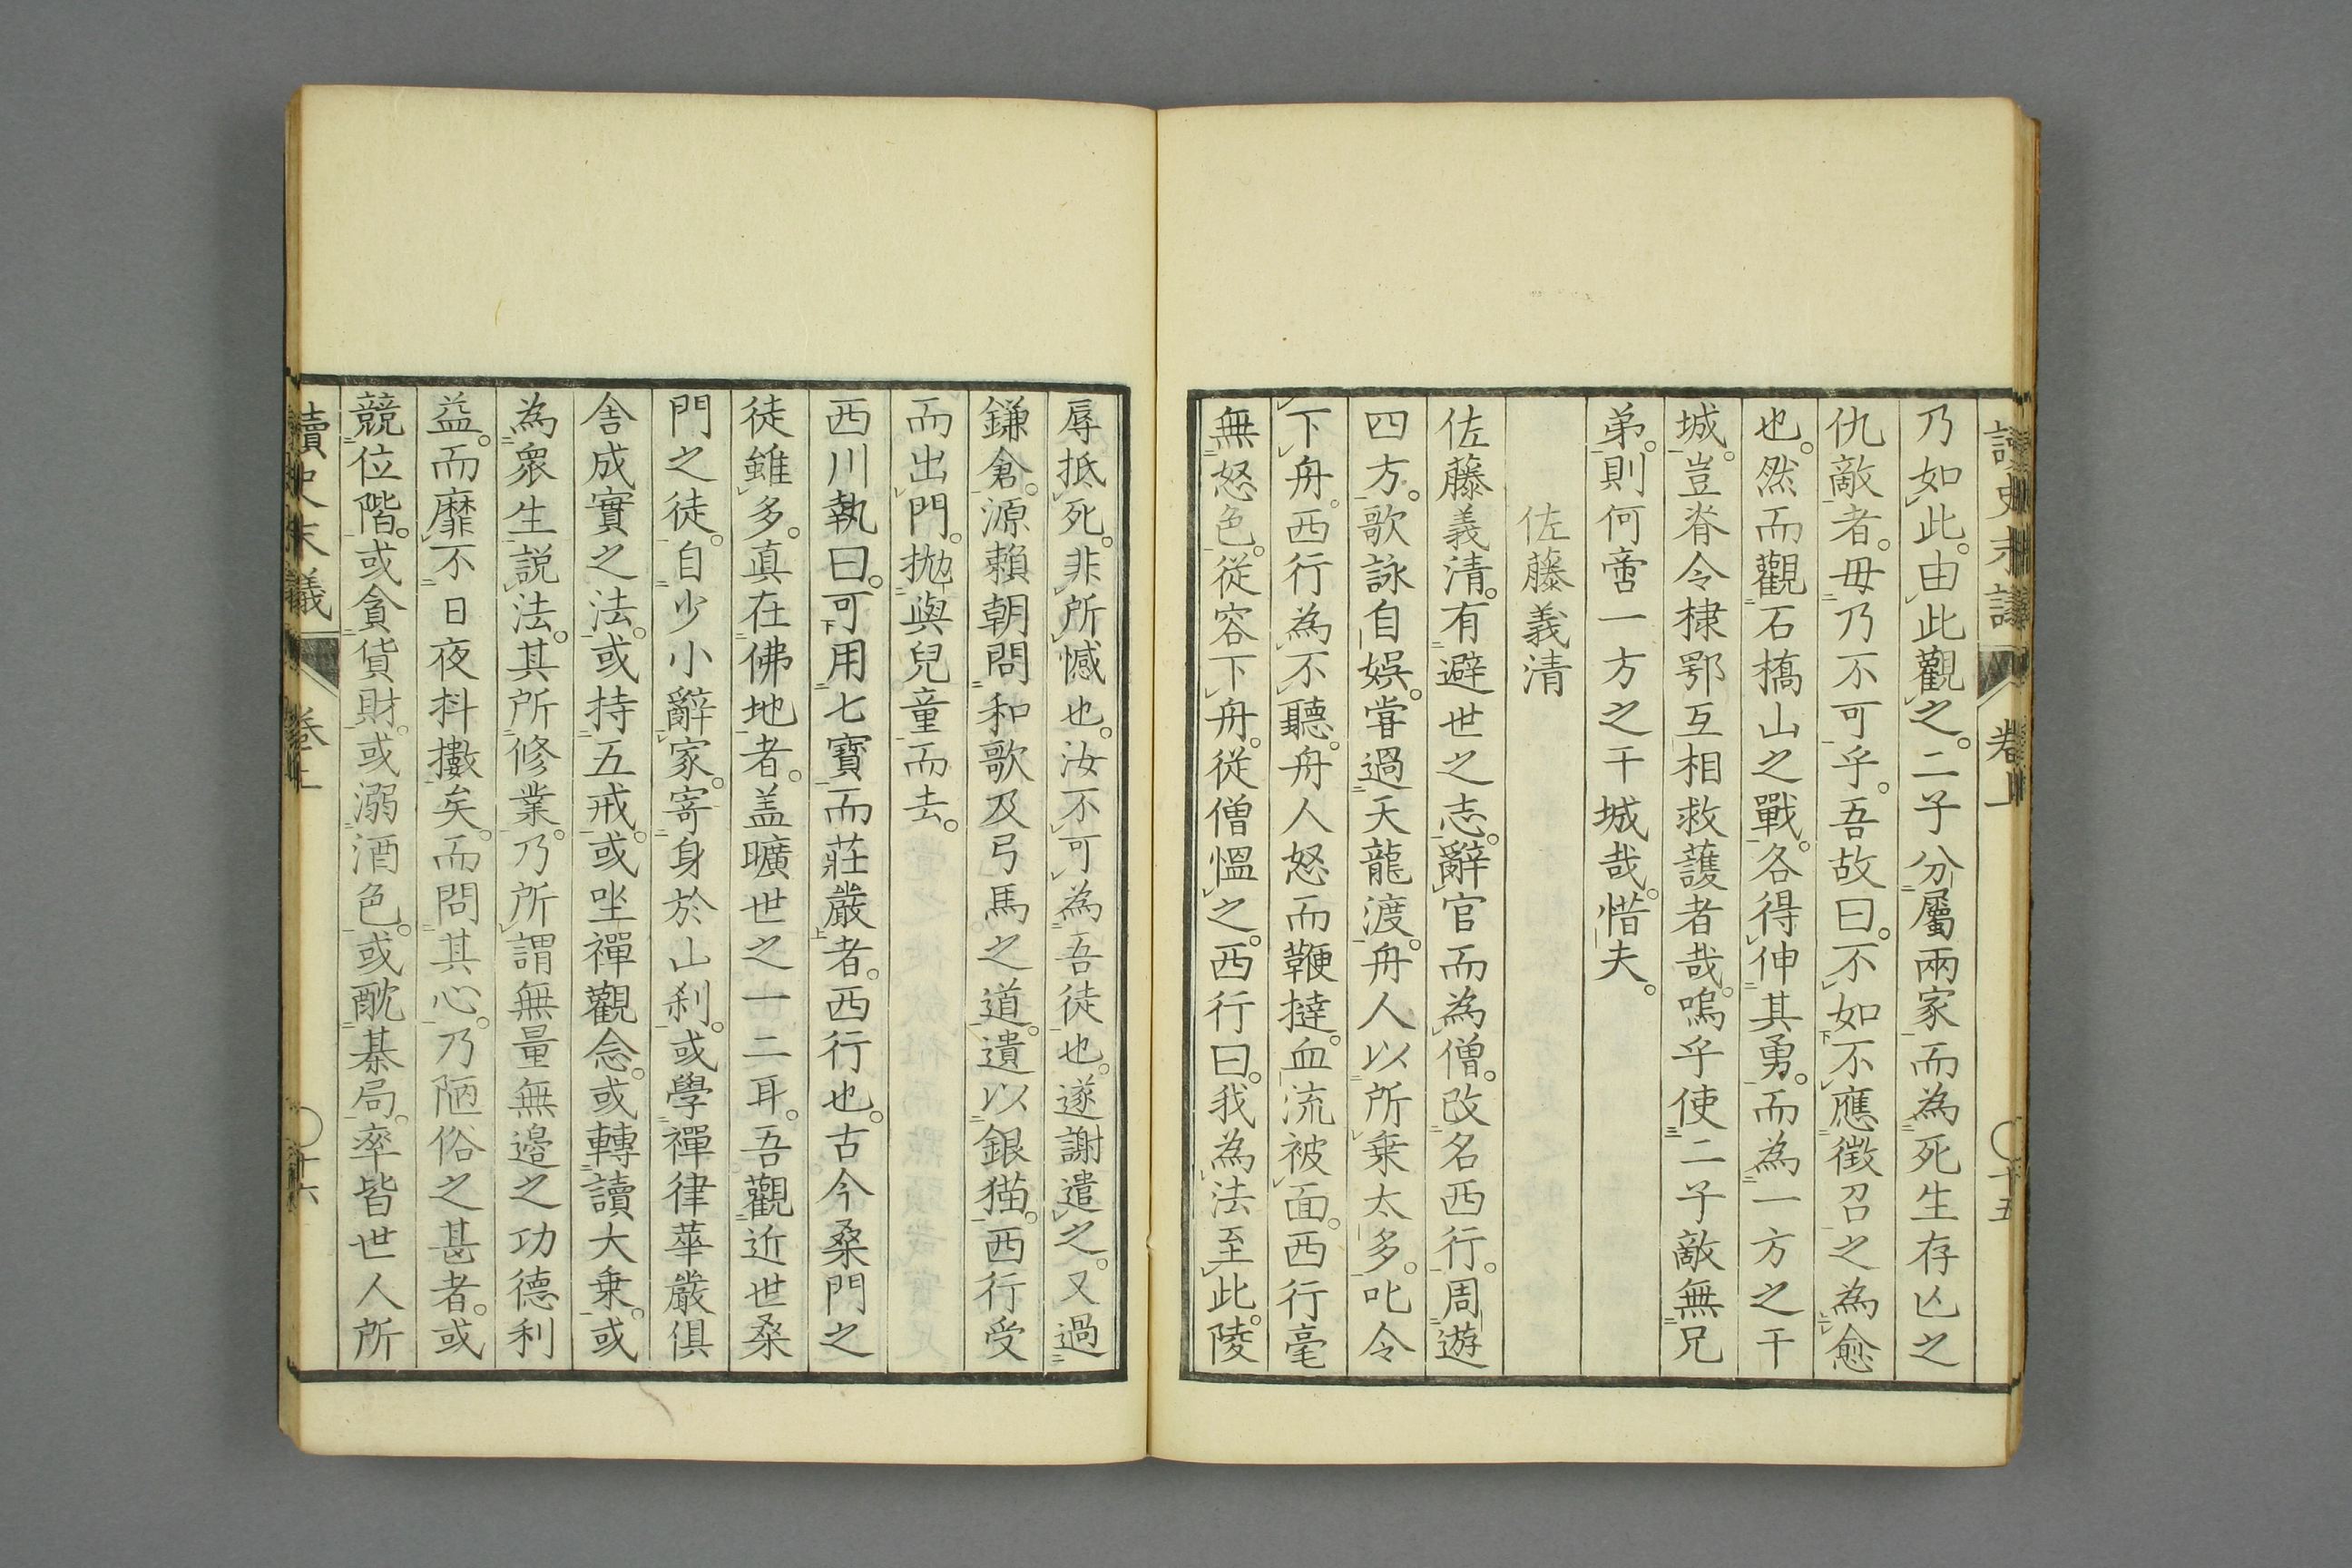 乃如此。由此觀之。二子分屬兩家而為死生存亾之
仇敵者。毋乃不可乎。吾故曰。不如不應徵召之為愈
也。然而觀石橋山之戰。各得伸其勇。而為一方之干
城。豈脊令棣鄂互相救護者哉。嗚乎使二子敵無兄
弟。則何啻一方之干城哉。惜夫。
佐藤義清
佐藤義清。有避世之志。辭官而為僧。改名西行。周遊
四方。歌詠自娛。甞過天龍渡。舟人以所乗太多。叱令
下舟。西行為不聽。舟人怒而鞭撻。血流被面。西行毫
無怒色。從容下舟。從僧慍之。西行曰。我為法至此。陵
辱抵死。非所憾也。汝不可為吾徒也。遂謝遣之。又過
鎌倉。源賴朝問和歌及弓馬之道。遺以銀猫。西行受
而出門。拋與兒童而去。
西川執曰。可用七寳而莊嚴者。西行也。古今桑門之
徒雖多。真在佛地者。盖曠世之一二耳。吾觀近世桑
門之徒。自少小辭家。寄身於山刹。或學禪律華嚴俱
舍成實之法。或持五戒。或坐禪觀念。或轉讀大乗。或
為衆生説法。其所修業。乃所謂無量無邊之功德利
益。而靡不日夜抖擻矣。而問其心。乃陋俗之甚者。或
競位階。或貪貨財。或溺酒色。或酖棊局。率皆世人所
讀史末議 卷上 十六